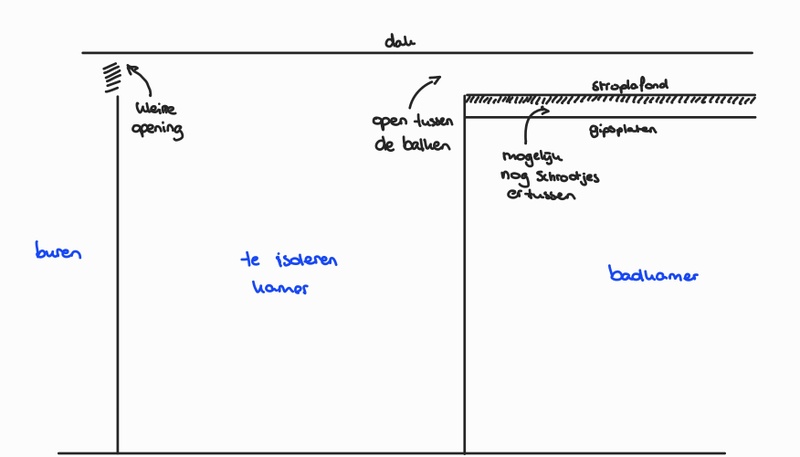 dak
kleine
opening
open tussen
de balken
stroplafond
gipsplaten
mogelijk
nog schrootjes
ertussen
buren
te isoleren
kamer
badkamer